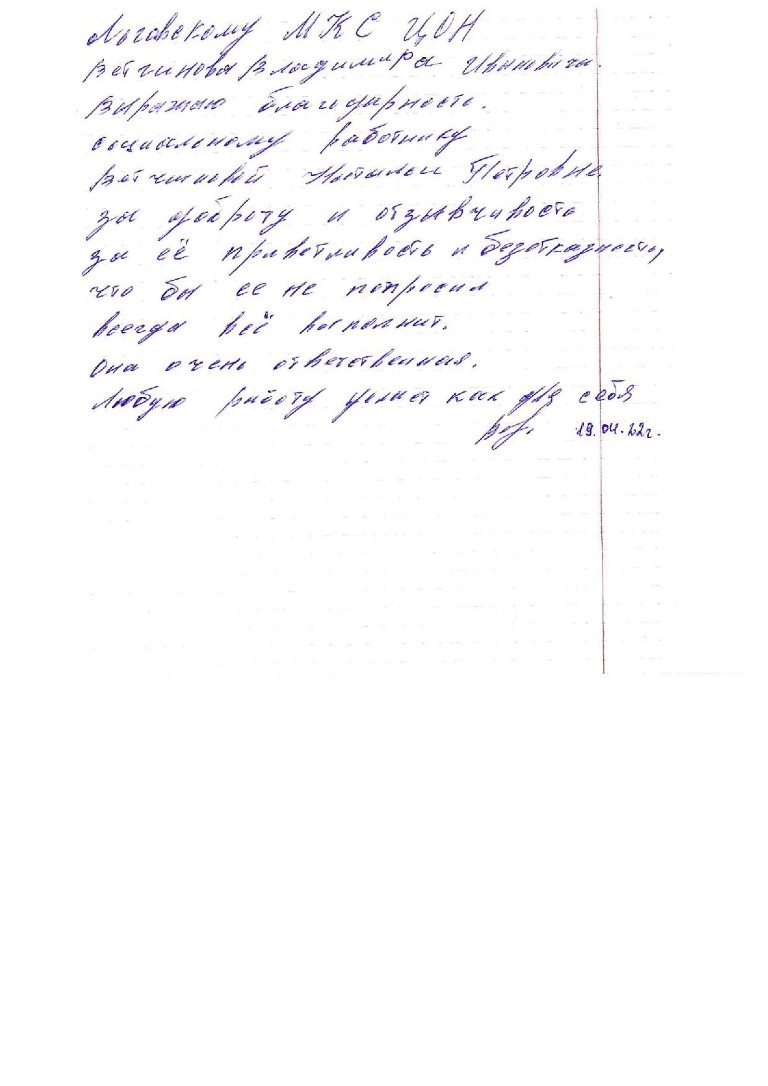 Льговскому МКС ЦОН
Ветчинова Владимира Ивановича.
Выражаю благодарность.
социальному работнику
Ветчиновой Наталье Петровне
за доброту и отзывчивость
за её приветливость и безотказность,
что бы ее не попросил
всегда всё восполнит.
Она очень ответственная.
Любую работу делает как для себя
19.04.22г.